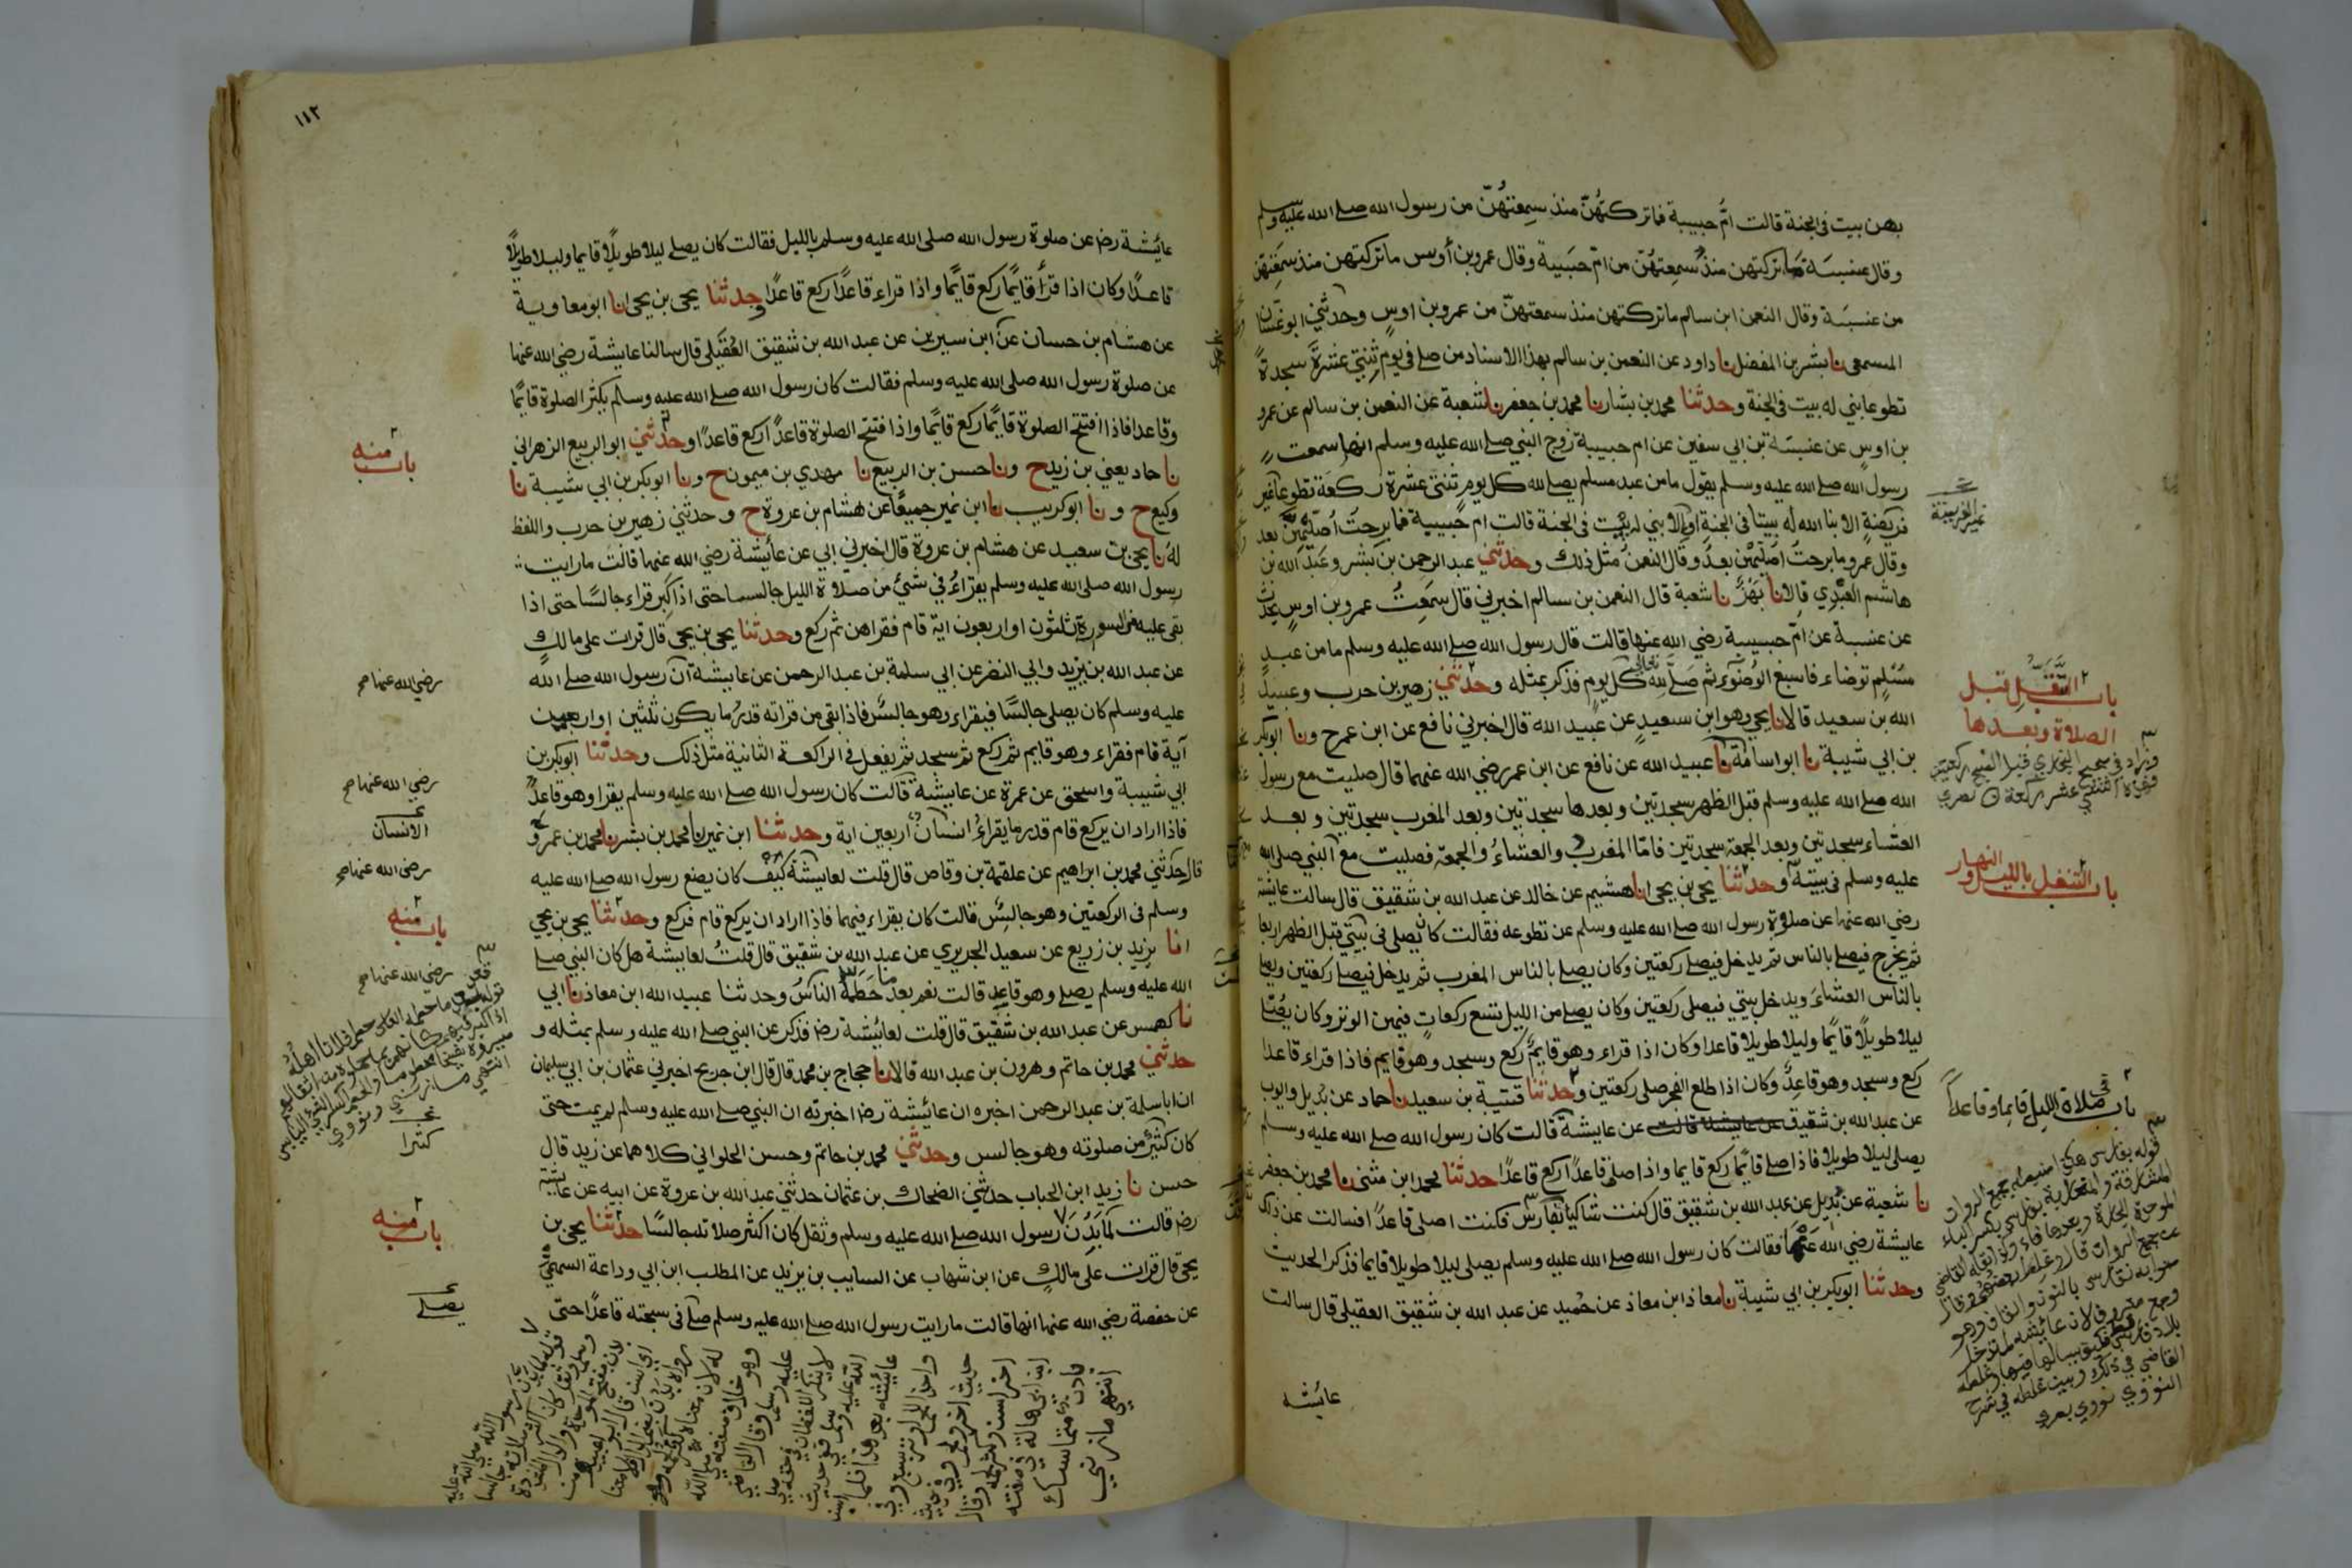 بهن بيت في الجنة قالت ام حبيبة فما تركتهن منذ سمعتهن من رسول الله صلى الله عليه وسلم
وقال عنبسة ما تركتهن منذ سمعتهن من ام حبيبة وقال عمرو بن أوس ما تركتهن منذ سمعتهن
من عنبسة وقال النعمن ابن سالم ما تركتهن منذ سمعتهن من عمرو بن اوس وحدثني ابو غسان
المسمعي نا بشر بن المفضل نا داود عن النعمن بن سالم بهذا الاسناد من صلى في يوم ثنتي عشرة سجدة
تطوعا بني له بيت في الجنة وحدثنا محمد بن بشار نا محمد بن جعفر نا شعبة عن النعمن بن سالم عن عمرو
بن اوس عن عنبسة بن ابي سفين عن ام حبيبة زوج النبي صلى الله عليه وسلم انها سمعت
رسول الله صلى الله عليه وسلم يقول ما من عبد مسلم يصلي لله كل يوم ثنتي عشرة ركعة تطوعا غير
فريضة الا بنا الله له بيتا في الجنة او الا بني له بيت في الجنة قالت ام حبيبة فما برحت أصليهن بعد
وقال عمرو ما برحت اصليهن بعد وقال النعمن مثل ذلك وحدثني عبد الرحمن بن بشر وعبد الله بن
هاشم العبدي قالا نا بهز نا شعبة قال النعمن بن سالم اخبرني قال سمعت عمرو بن اوس يحدث
عن عنبسة عن ام حبيبة رضي الله عنها قالت قال رسول الله صلى الله عليه وسلم ما من عبد
مسلم توضاء فاسبغ الوضوء ثم صلى لله كل يوم فذكر بمثله وحدثني زهير بن حرب وعبيد
الله بن سعيد قالا نا يحيى وهو ابن سعيد عن عبيد الله قال اخبرني نافع عن ابن عمر ح ونا ابو بكر
بن ابي شيبة نا ابو اسامة نا عبيد الله عن نافع عن ابن عمر رضي الله عنهما قال صليت مع رسول
الله صلى الله عليه وسلم قبل الظهر سجدتين وبعدها سجدتين وبعد المغرب سجدتين وبعد
العشاء سجدتين وبعد الجمعة سجدتين فاما المغرب والعشاء والجمعة فصليت مع النبي صلى الله
عليه وسلم في بيته وحدثنا يحيى بن يحيى انا هشيم عن خالد عن عبد الله بن شقيق قال سالت عايشة
رضي الله عنها عن صلوة رسول الله صلى الله عليه وسلم عن تطوعه فقالت كان يصلي في بيتي قبل الظهر اربعا
ثم يخرج فيصلي بالناس ثم يدخل فيصلي ركعتين وكان يصلي بالناس المغرب ثم يدخل فيصلي ركعتين ويصلي
بالناس العشاء ويدخل بيتي فيصلى ركعتين وكان يصلي من الليل تسع ركعات فيهن الوتر وكان يصلي
ليلا طويلا قايما وليلا طويلا قاعدا وكان اذا قراء وهو قايم ركع وسجد وهو قايم فاذا قراء قاعدا
ركع وسجد وهو قاعد وكان اذا طلع الفجر صلى ركعتين وحدثنا قتيبة بن سعيد نا حماد عن بديل وايوب
عن عبد الله بن شقيق عن عايشة قالت عن عايشة قالت كان رسول الله صلى الله عليه وسلم
يصلى ليلا طويلا فاذا صلى قائما ركع قايما واذا صلى قاعدا ركع قاعدا حدثنا محمد ابن مثنى نا محمد بن جعفر
نا شعبة عن بديل عن عبد الله بن شقيق قال كنت شاكيا بفارس فكنت اصلى قاعدا فسالت عن ذلك
عايشة رضي الله عنها فقالت كان رسول الله صلى الله عليه وسلم يصلى ليلا طويلا قايما فذكر الحديث
وحدثنا ابو بكر بن ابي شيبة نا معاذ ابن معاذ عن حميد عن عبد الله بن شقيق العقيلي قال سالت
عائشه
غير الفريضة
باب التنفل قبل
الصلاة وبعدها
وزاد في صحيح البخاري قبل الصبح ركعتين
باب التنفل بالليل والنهار
باب في صلاة الليل قايما وقاعدا
١١٢
عائشة رضها عن صلوة رسول الله صلى الله عليه وسلم بالليل فقالت كان يصلي ليلا طويلا قايما وليلا طويلا
قاعدا وكان اذا قرأ قايما ركع قايما واذا قراء قاعدا ركع قاعدا وحدثنا يحيى بن يحيى انا ابو معاوية
عن هشام بن حسان عن ابن سيرين عن عبد الله بن شقيق العقيلي قال سالنا عايشة رضي الله عنها
عن صلوة رسول الله صلى الله عليه وسلم فقالت كان رسول الله صلى الله عليه وسلم يكثر الصلوة قايما
وقاعدا فاذا افتتح الصلوة قايما ركع قايما واذا فتتح الصلوة قاعدا ركع قاعدا وحدثني ابو الربيع الزهراني
نا حماد يعني بن زيد ح ونا حسن بن الربيع نا مهدي بن ميمون ح ونا ابو بكر بن ابي شيبة نا
وكيع ح ونا ابو كريب نا ابن نمير جميعا عن هشام بن عروة ح وحدثني زهير بن حرب واللفظ
له نا يحيى بن سعيد عن هشام بن عروة قال اخبرني ابي عن عائشة رضي الله عنها قالت ما رايت
رسول الله صلى الله عليه وسلم يقراء في شيئ من صلاة الليل جالسا حتى اذا كبر قراء جالسا حتى اذا
بقى عليه من السورة ثلثون او اربعون اية قام فقراهن ثم ركع وحدثنا يحيى بن يحيى قال قرات على مالك
عن عبد الله بن يزيد وابي النضر عن ابي سلمة بن عبد الرحمن عن عايشة ان رسول الله صلى الله
عليه وسلم كان يصلي جالسا فيقراء وهو جالس فاذا بقى من قراته قدر ما يكون ثلثين او اربعين
آية قام فقراء وهو قايم ثم ركع ثم سجد ثم يفعل في الراكعة الثانية مثل ذلك وحدثنا ابو بكر بن
ابي شيبة واسحق عن عمرة عن عايشة قالت كان رسول الله صلى الله عليه وسلم يقرا وهو قاعد
فاذا اراد ان يركع قام قدر ما يقراء انسان اربعين اية وحدثنا ابن نمير نا محمد بن بشر نا محمد بن عمرو
قال حدثني محمد بن ابراهيم عن علقمة بن وقاص قال قلت لعايشة كيف كان يصنع رسول الله صلى الله عليه
وسلم في الركعتين وهو جالس قالت كان يقراء فيهما فاذا اراد ان يركع قام فركع وحدثنا يحيى بن يحيى
انا يزيد بن زريع عن سعيد الجريري عن عبد الله بن شقيق قال قلت لعايشة هل كان النبي صلى
الله عليه وسلم يصلي وهو قاعد قالت نعم بعد ما حطمه الناس وحدثنا عبيد الله ابن معاذ نا ابي
نا كهمس عن عبد الله بن شقيق قال قلت لعائشة رضها فذكر عن النبي صلى الله عليه وسلم بمثله و
حدثني محمد بن حاتم وهرون بن عبد الله قالا نا حجاج بن محمد قال قال ابن جريج اخبرني عثمان بن ابي سليمان
ان ابا سلمة بن عبد الرحمن اخبره ان عائشة رضها اخبرته ان النبي صلى الله عليه وسلم لم يمت حتى
كان كثير من صلوته وهو جالس وحدثني محمد بن حاتم وحسن الحلواني كلاهما عن زيد قال
حسن نا زيد ابن الحباب حدثني الضحاك بن عثمان حدثني عبد الله بن عروة عن ابيه عن عايشة
رضها قالت لما بدن رسول الله صلى الله عليه وسلم وثقل كان اكثر صلاته جالسا حدثنا يحيى بن
يحيى قال قرات على مالك عن ابن شهاب عن السايب بن يزيد عن المطلب ابن ابي وداعة السهمي
عن حفصة رضي الله عنها انها قالت ما رايت رسول الله صلى الله عليه وسلم صلى في سبحته قاعدا حتى
باب منه
رضي الله عنها صح
رضي الله عنها صح
الانسان
رضي الله عنها صح
باب منه
رضي الله عنها صح
كثيرا
باب منه
يصلي